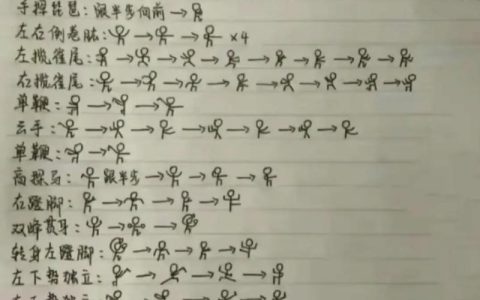 手挥琵琶:跟半步向前→
左右倒卷肱:→→→×4
左揽雀尾:→→→→→→→
右揽雀尾:→→→→→→→
单鞭:→→
云手:→→→→→→
单鞭:→
高探马:跟半步→→→
右蹬脚:→→→
双峰贯耳:→→
转身左蹬脚:→→→
左下势独立:→→→